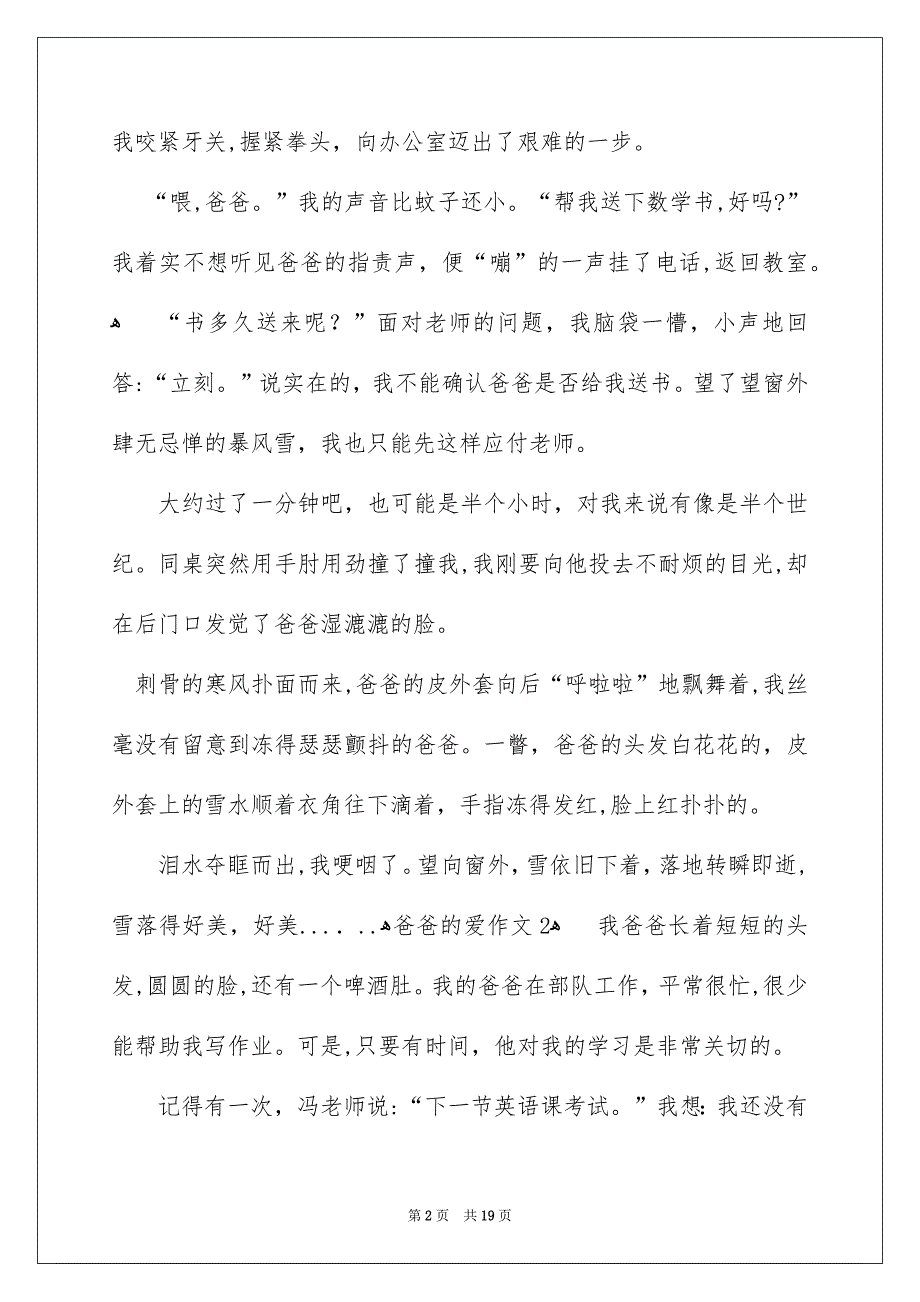 我咬紧牙关,握紧拳头，向办公室迈出了艰难的一步。
“喂,爸爸。”我的声音比蚊子还小。“帮我送下数学书,好吗?”
我着实不想听见爸爸的指责声，便“嘣”的一声挂了电话,返回教室。
ﻫ “书多久送来呢？”面对老师的问题，我脑袋一懵，小声地回
答:“立刻。”说实在的，我不能确认爸爸是否给我送书。望了望窗外
肆无忌惮的暴风雪，我也只能先这样应付老师。
大约过了一分钟吧，也可能是半个小时，对我来说有像是半个世
纪。同桌突然用手肘用劲撞了撞我,我刚要向他投去不耐烦的目光,却
在后门口发觉了爸爸湿漉漉的脸。
刺骨的寒风扑面而来,爸爸的皮外套向后“呼啦啦”地飘舞着,我丝
毫没有留意到冻得瑟瑟颤抖的爸爸。一瞥，爸爸的头发白花花的，皮
外套上的雪水顺着衣角往下滴着，手指冻得发红,脸上红扑扑的。
泪水夺眶而出,我哽咽了。望向窗外,雪依旧下着,落地转瞬即逝,
雪落得好美，好美......ﻫ爸爸的爱作文2ﻫ 我爸爸长着短短的头
发,圆圆的脸,还有一个啤酒肚。我的爸爸在部队工作，平常很忙,很少
能帮助我写作业。可是,只要有时间，他对我的学习是非常关切的。
记得有一次，冯老师说:“下一节英语课考试。”我想:我还没有
第2页 共19页